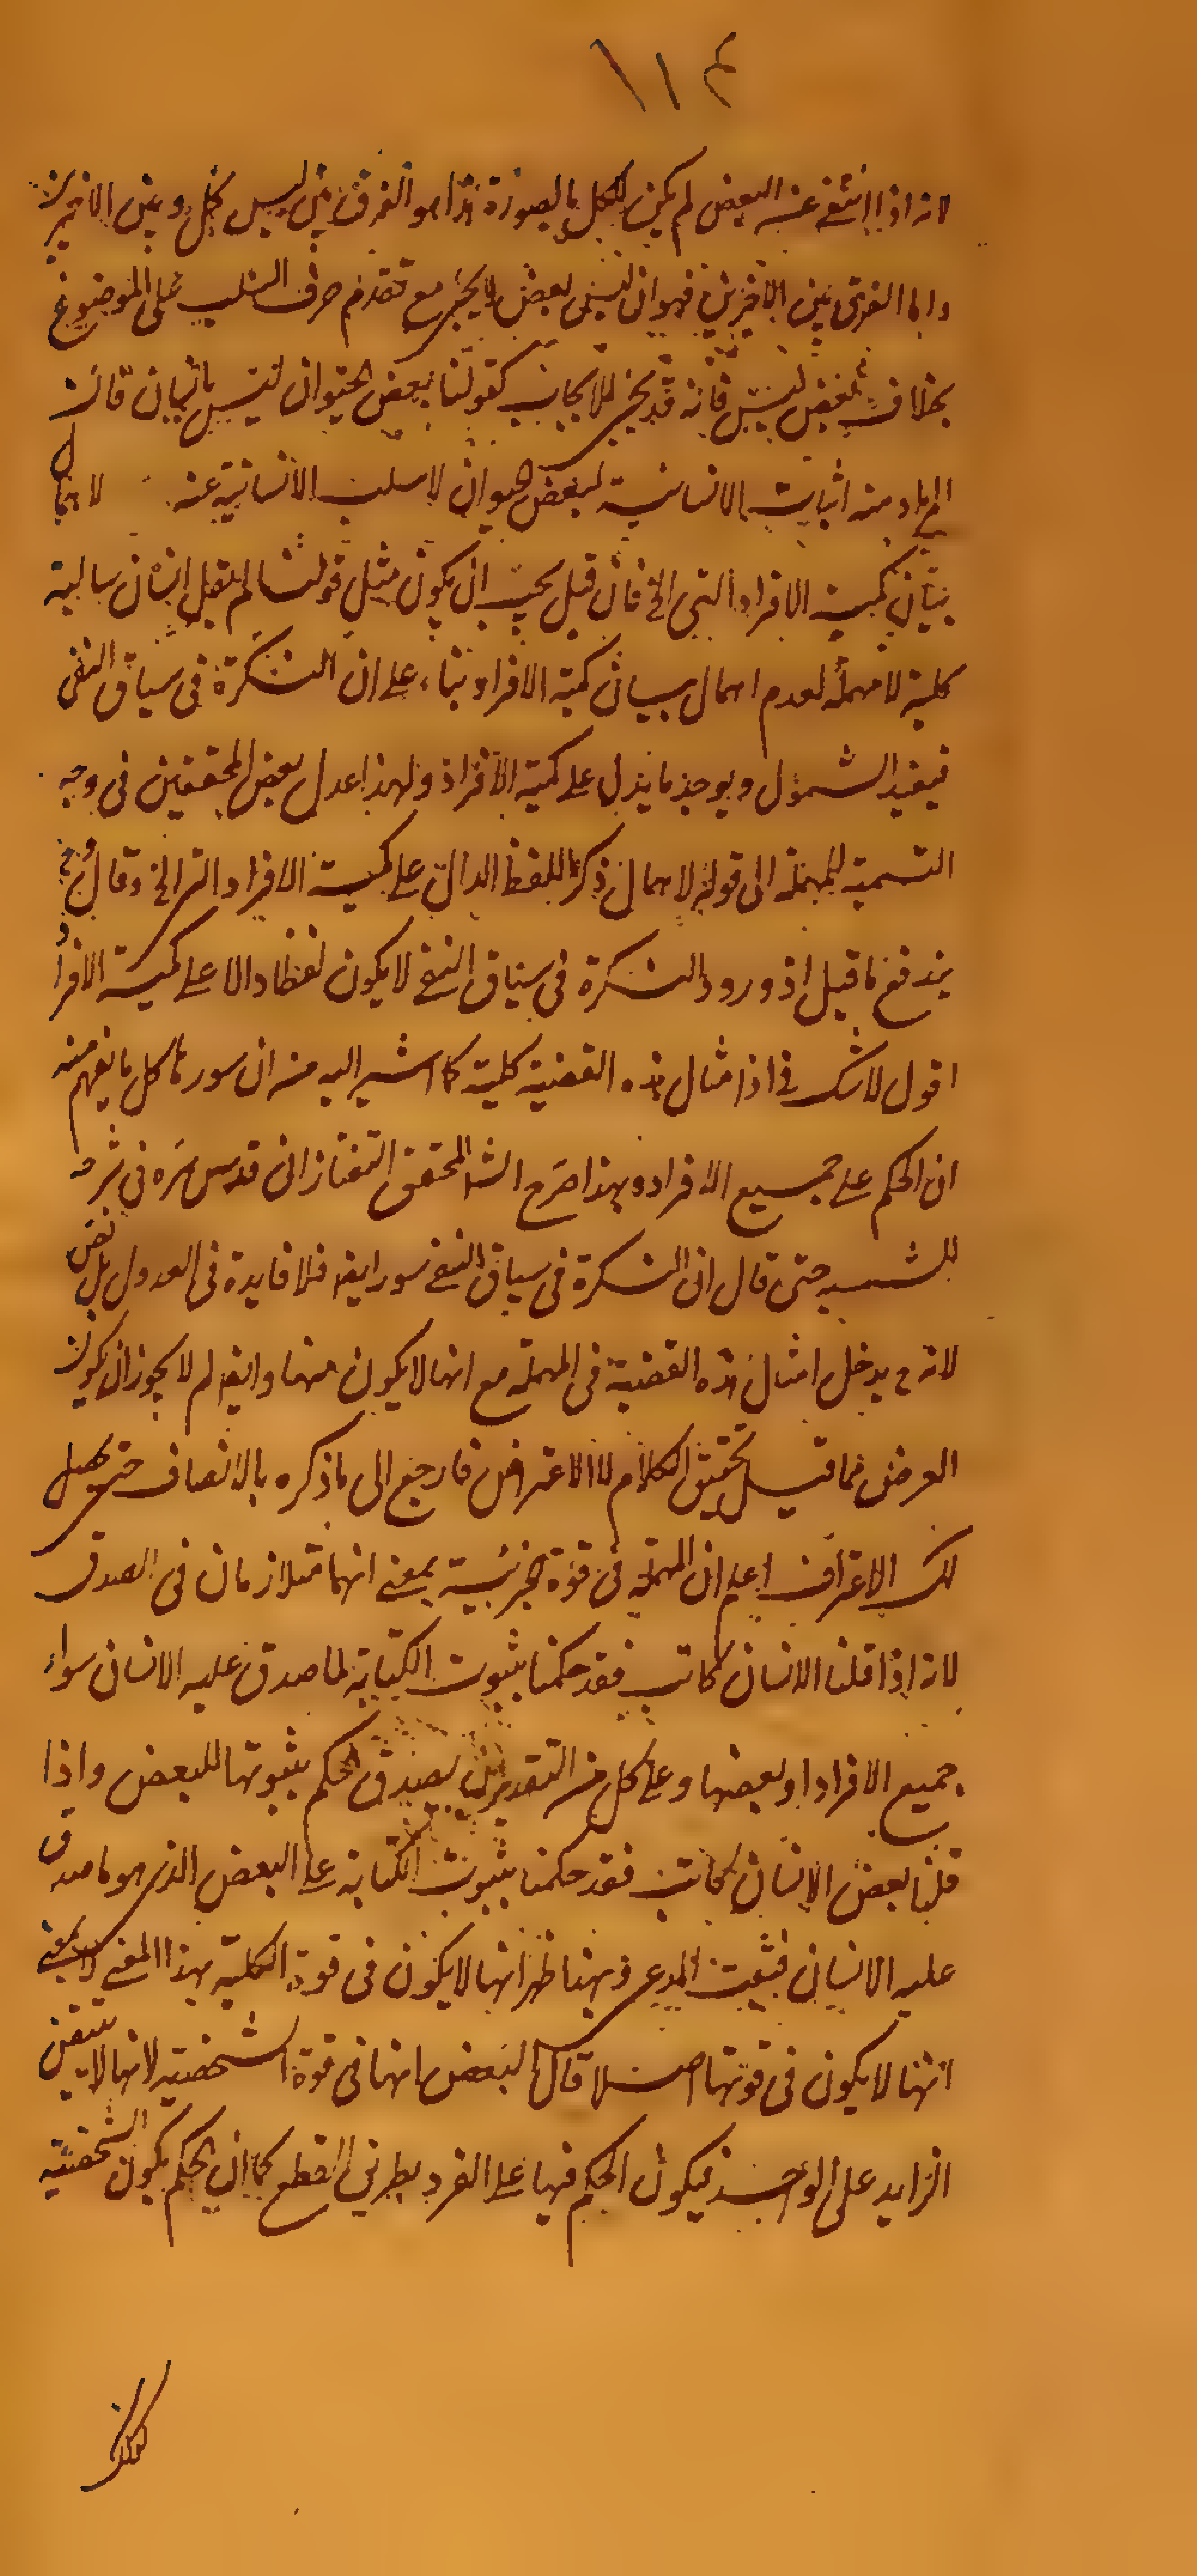 ١١٤
لانه اذا انتفى عنه البعض لم يكن الكل بالضرورة هذا هو الفرق بين ليس كل وبين الاخيرين
واما الفرق بين الاخيرين فهو ان ليس بعض لا يجئ مع تقدم حرف السلب على الموضوع
بخلاف بعض ليس فانه قد يجئ للايجاب كقولنا بعض الحيوان ليس بانسان فان
المراد منه اثبات اللاانسانية لبعض الحيوان لا سلب الانسانية عنه لاهمال
بيان كمية الافراد التى الخ فان قيل يجب ان يكون مثل قولنا لم يقل انسان سالبة
كلية لا مهملة لعدم اهمال بيان كمية الافراد بناء على ان النكرة فى سياق النفى
فيفيد الشمول ويوجد ما يدل على كمية الافراد ولهذا عدل بعض المحققين فى وجه
التسمية بالمهملة الى قوله لاهمال ذكر اللفظ الدال على كمية الافراد الخ وقال
يندفع ما قيل اذ ورود النكرة فى سياق النفى لا يكون لفظا دالا على كمية الافراد
اقول لا شك فى ان امثال هذه القضية كلية كما اشير اليه من ان سورها كل ما يفهم منه
ان الحكم على جميع الافراد وبهذا صرح المحقق التفتازانى قدس سره فى شرحه
للشمسيه حتى قال ان النكرة فى سياق النفى سور ايضا فلا فايدة فى العدول بل نقض
لانه ح يدخل امثال هذه القضية فى المهملة مع انها لا يكون منها وايضا لم لا يجوز ان يكون
الغرض مما قيل تحقيق الكلام لا الاعتراض فارجع الى ما ذكره بالانصاف حتى يحصل
لك الاعتراف اعلم ان المهملة فى قوة الجزئية بمعنى انهما متلازمان فى الصدق
لانه اذا قلنا الانسان كاتب فقد حكمنا بثبوت الكتابة لما صدق عليه الانسان سواء
جميع الافراد او بعضها وعلى كل من التقديرين يصدق الحكم بثبوتها للبعض واذا
قلنا بعض الانسان كاتب فقد حكمنا بثبوت الكتابة على البعض الذى هو ما صدق
عليه الانسان فيثبت المدعى وبهذا ظهر انها لا يكون فى قوة الكلية بهذا المعنى
انها لا يكون فى قوتها اصلا قال البعض انها فى قوة الشخصية لانها لا يتيقن
الزايد على الواحد فيكون الحكم فيها على الفرد بطريق القطع كما ان الحكم يكون الشخصية